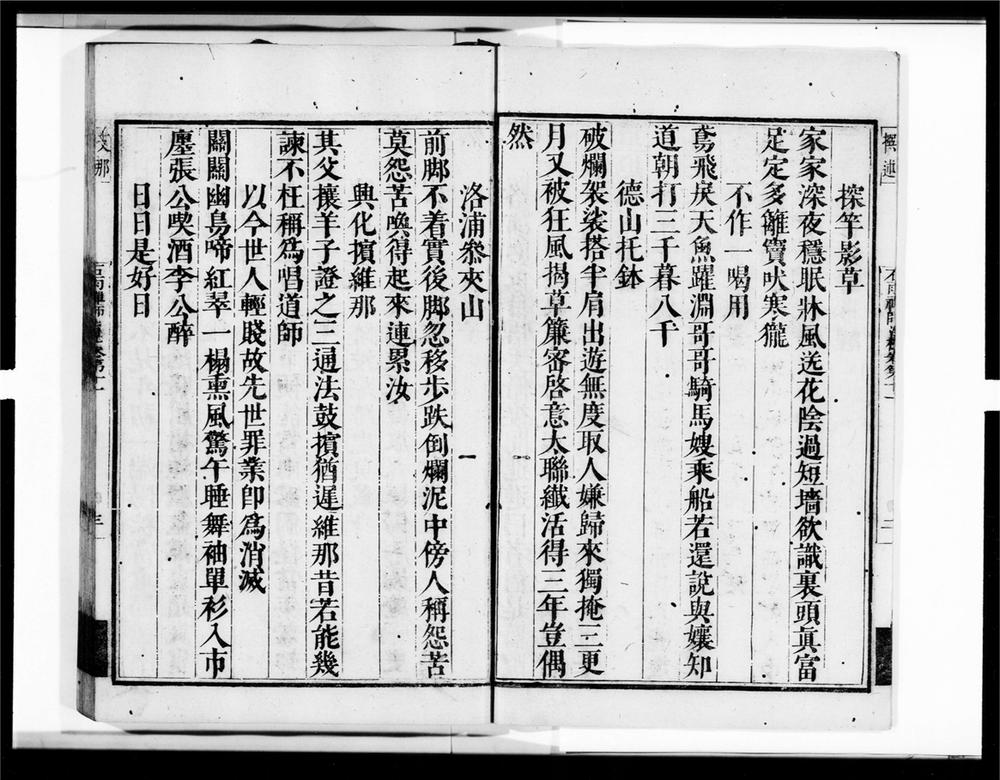 探竿影草
家家深夜穩眠牀風送花陰過短墻欲識裏頭眞富
足定多籬竇吠寒狵
不作一喝用
鳶飛戾天魚躍淵哥哥騎馬嫂乘船若還說與孃知
道朝打三千暮八千
德山托鉢
破爛袈裟搭半肩出遊無度取人嫌歸來獨掩三更
月又被狂風揭草簾密啓意太聯纖活得三年豈偶
然
洛浦叅夾山
前脚不着實後脚忽移步跌倒爛泥中傍人稱怨苦
莫怨苦喚得起來連累汝
興化擯維那
其父攘羊子證之三通法鼓擯猶遲維那昔若能幾
諫不枉稱爲唱道師
以今世人輕賤故先世罪業卽爲消滅
關關幽鳥啼紅翠一榻熏風驚午睡舞袖單衫入市
廛張公喫酒李公醉
日日是好日